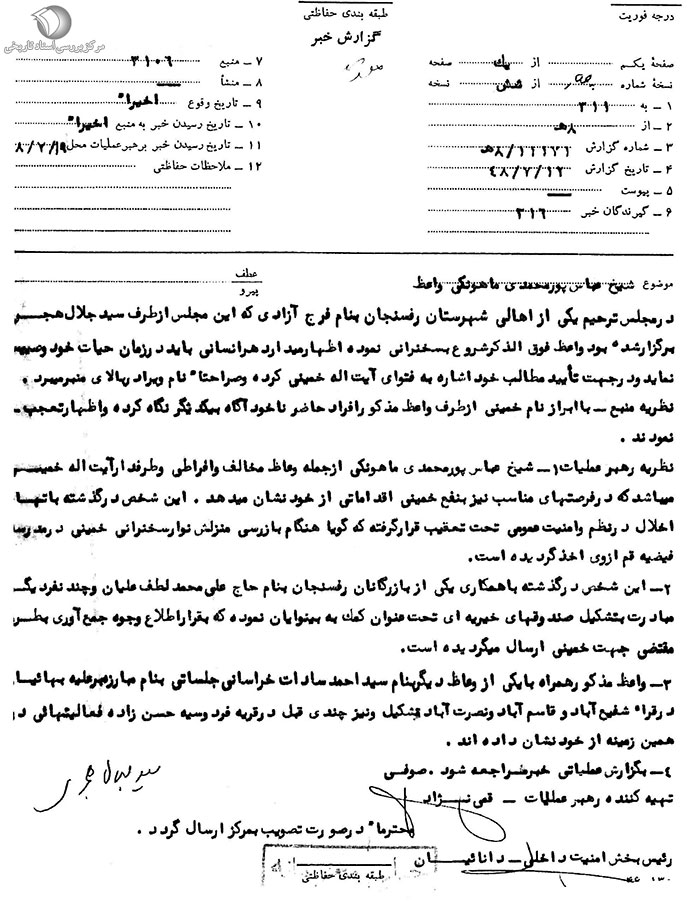 درجه فوریت
طبقه بندی حفاظتی
گزارش خبر
مرکز بررسی اسناد تاریخی
صفحهٔ یکم از یک صفحه
نسخهٔ شماره از شش نسخه
۱ ـ به ۳۱۱
۲ ـ از ۸هـ
۳ ـ شماره گزارش ۸/۱۲۱۷۱هـ
۴ ـ تاریخ گزارش ۴۸/۷/۱۲
۵ ـ پیوست
۶ ـ گیرندگان خبر ۳۱۶
۷ ـ منبع ۳۱۰۶
۸ ـ منشأ
۹ ـ تاریخ وقوع اخیرا"
۱۰ ـ تاریخ رسیدن خبر به منبع اخیرا"
۱۱ ـ تاریخ رسیدن خبر برهبر عملیات محل
۱۲ ـ ملاحظات حفاظتی
موضوع شیخ عباس پورمحمدی ماهونکی واعظ
عطف
پیرو
در مجلس ترحیم یکی از اهالی شهرستان رفسنجان بنام فرج آزادی که این مجلس از طرف سید جلال هجر
برگزار شده بود واعظ فوق الذکر شروع بسخنرانی نموده اظهار میدارد هر انسانی باید در زمان حیات خود وصیت
نماید و در جهت تأیید مطالب خود اشاره به فتوای آیت اله خمینی کرده و صراحتا" نام ویرا در بالای منبر میبرد .
نظریه منبع ـ با ابراز نام خمینی از طرف واعظ مذکور افراد حاضر ناخودآگاه بیکدیگر نگاه کرده و اظهار تعجب ـ
نمودند .
نظریه رهبر عملیات ۱ـ شیخ عباس پورمحمدی ماهونکی از جمله وعاظ مخالف و افراطی و طرفدار آیت اله خمینی
میباشد که در فرصتهای مناسب نیز بنفع خمینی اقداماتی از خود نشان میدهد . این شخص در گذشته باتها
اخلال در نظم و امنیت عمومی تحت تعقیب قرار گرفته که گویا هنگام بازرسی منزلش نوار سخنرانی خمینی در مدرسه
فیضیه قم از وی اخذ گردیده است.
۲ـ این شخص در گذشته با همکاری یکی از بازرگانان رفسنجان بنام حاج علی محمد لطف علیان و چند نفر دیگر
مبادرت بتشکیل صندوقهای خیریه ای تحت عنوان کمک به بینوایان نموده که بقرار اطلاع وجوه جمع آوری بطر
مقتضی جهت خمینی ارسال میگردیده است.
۳ـ واعظ مذکور همراه با یکی از وعاظ دیگر بنام سید احمد سادات خراسانی جلساتی بنام مبارزه بر علیه بهائیان
در قراء شفیع آباد و قاسم آباد و نصرت آباد تشکیل و نیز چندی قبل در قریه فردوسیه حسن زاده فعالیتهائی در
همین زمینه از خود نشان داده اند .
۴ـ بگزارش عملیاتی خبر مراجعه شود . صوفی
تهیه کننده رهبر عملیات ـ قمی نژاد
محترما" در صورت تصویب بمرکز ارسال گردد .
رئیس بخش امنیت داخلی ـ دانائیان
سید جلال هجری
طبقه بندی حفاظتی